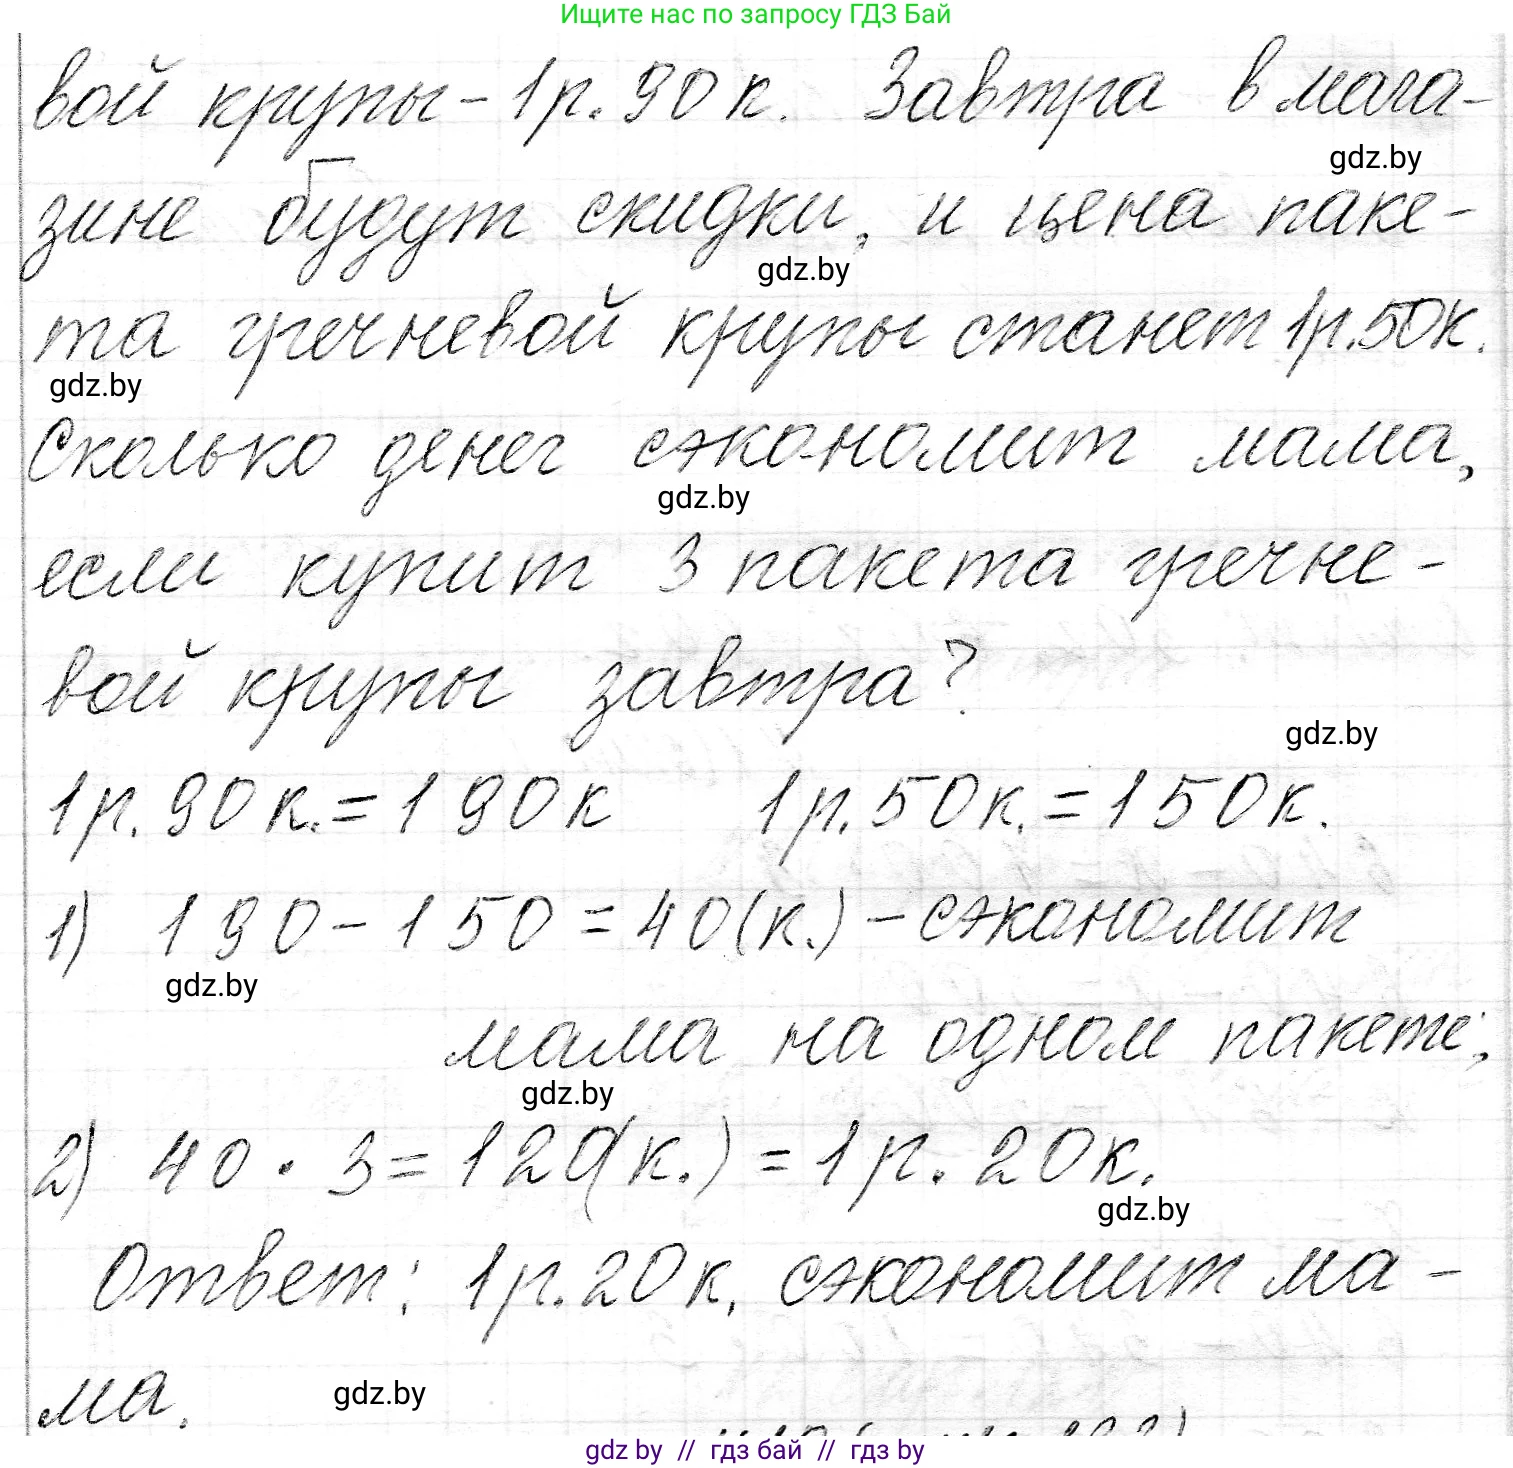 Ищите нас по запросу ГДЗ Бай
вой крупы - 1 р. 90 к. Завтра в мага-
gdz.by
зине будут скидки, и цена паке-
gdz.by
та гречневой крупы станет 1 р. 50 к.
gdz.by
Сколько денег сэкономит мама,
gdz.by
если купит 3 пакета гречне-
вой крупы завтра?
gdz.by
1 р. 90 к. = 190 к 1 р. 50 к. = 150 к.
1) 190 - 150 = 40 (к.) - сэкономит
gdz.by
мама на одном пакете;
gdz.by
2) 40 · 3 = 120 (к.) = 1 р. 20 к.
gdz.by
Ответ: 1 р. 20 к. сэкономит ма-
ма.
gdz.by
gdz by // гдз бай // гдз by